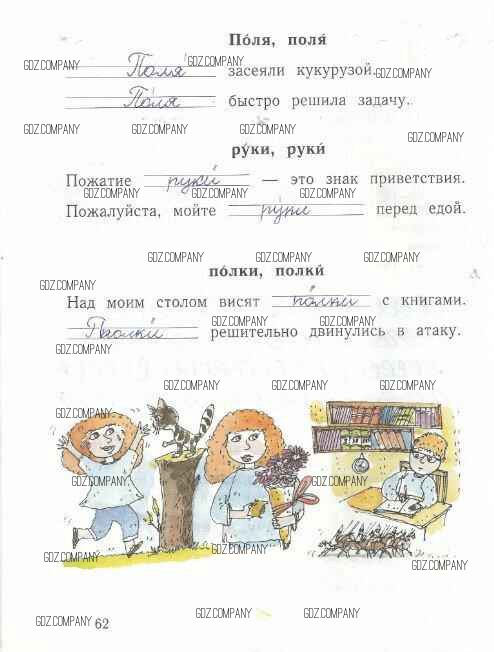 По́ля, поля́
GDZ.COMPANY GDZ.COMPANY GDZ.COMPANY
Поля́ засеяли кукурузой.
По́ля быстро решила задачу.
GDZ.COMPANY GDZ.COMPANY GDZ.COMPANY GDZ.COMPANY
ру́ки, руки́
Пожатие руки́ — это знак приветствия.
GDZ.COMPANY GDZ.COMPANY GDZ.COMPANY
Пожалуйста, мойте ру́ки перед едой.
GDZ.COMPANY GDZ.COMPANY GDZ.COMPANY
по́лки, полки́
GDZ.COMPANY
Над моим столом висят по́лки с книгами.
GDZ.COMPANY GDZ.COMPANY
Полки́ решительно двинулись в атаку.
GDZ.COMPANY
GDZ.COMPANY GDZ.COMPANY GDZ.COMPANY
GDZ.COMPANY
GDZ.COMPANY GDZ.COMPANY
GDZ.COMPANY GDZ.COMPANY GDZ.COMPANY
GDZ.COMPANY GDZ.COMPANY
GDZ.COMPANY 62